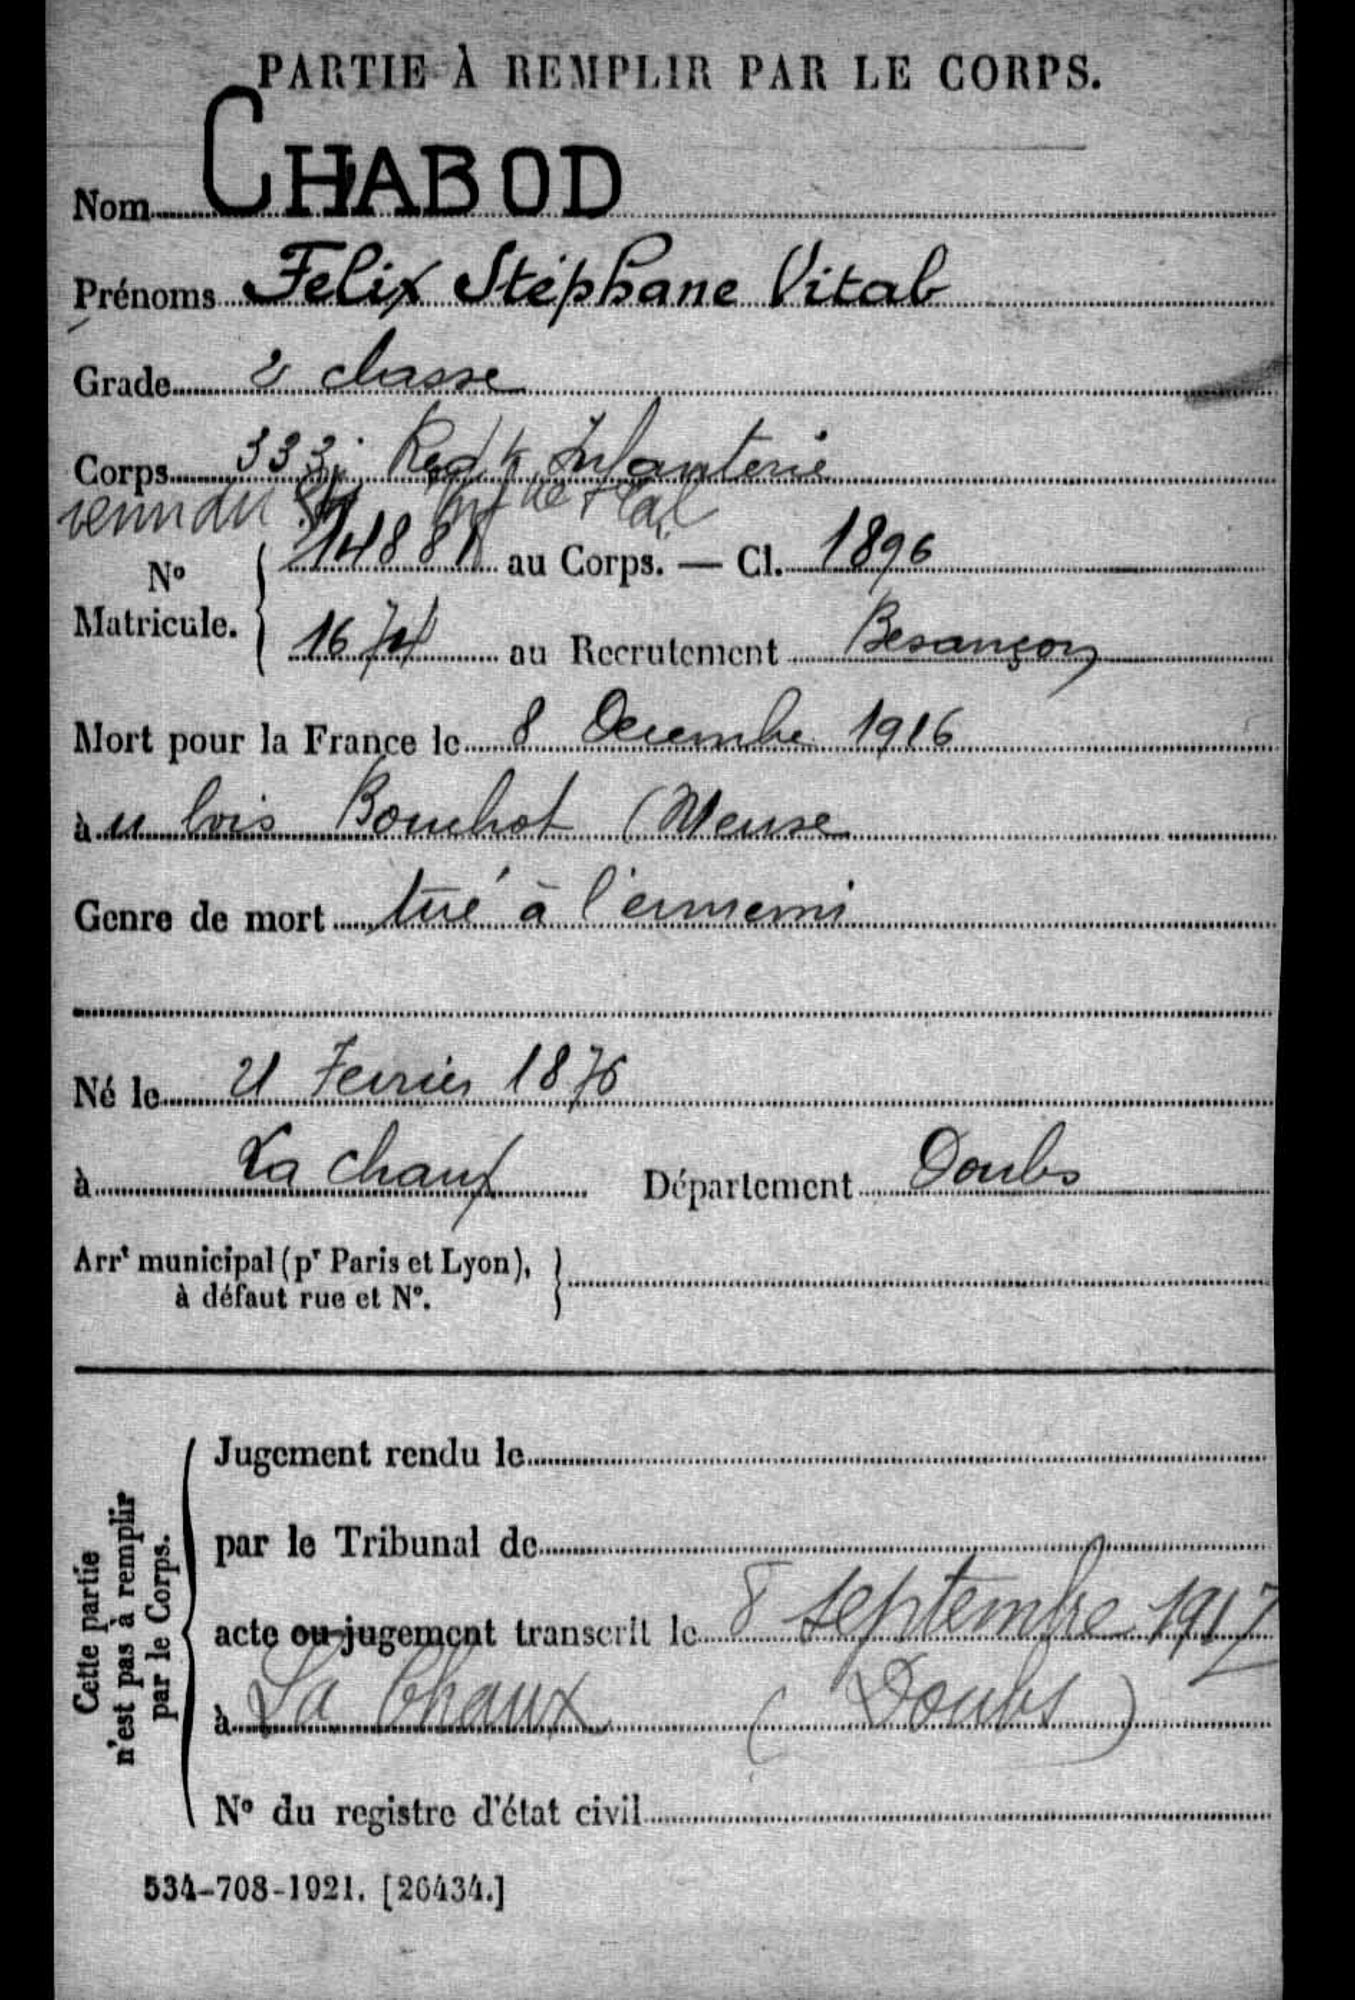 PARTIE À REMPLIR PAR LE CORPS.
Nom CHABOD
Prénoms Felix Stéphane Vital
Grade 2e classe
Corps 333e Regt Infanterie
venu du Inf
N° Matricule. 14881 au Corps. — Cl. 1896
1674 au Recrutement Besançon
Mort pour la France le 8 Decembre 1916
à u bois Bouchot (Meuse
Genre de mort tué à l'ennemi
Né le 21 Fevrier 1876
à La chaux Département Doubs
Arrt municipal (pr Paris et Lyon),
à défaut rue et N°.
Cette partie
n'est pas à remplir
par le Corps.
Jugement rendu le
par le Tribunal de
acte ou jugement transcrit le 8 septembre 1917
à La Chaux (Doubs)
N° du registre d'état civil
534-708-1921. [26434.]